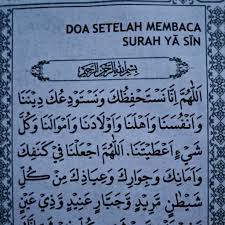 DOA SETELAH MEMBACA
SURAH YĀ SĪN
بِسْمِ اللهِ الرَّحْمٰنِ الرَّحِيْمِ
اَللّٰهُمَّ اِنَّا نَسْتَحْفِظُكَ وَنَسْتَوْدِعُكَ دِيْنَنَا
وَاَنْفُسَنَا وَاَهْلَنَا وَاَوْلَادَنَا وَاَمْوَالَنَا وَكُلَّ
شَيْءٍ اَعْطَيْتَنَا. اَللّٰهُمَّ اجْعَلْنَا فِيْ كَنَفِكَ
وَاَمَانِكَ وَجِوَارِكَ وَعِيَاذِكَ مِنْ كُلِّ
شَيْطٰنٍ مَّرِيْدٍ وَّجَبَّارٍ عَنِيْدٍ وَّذِيْ عَيْنٍ